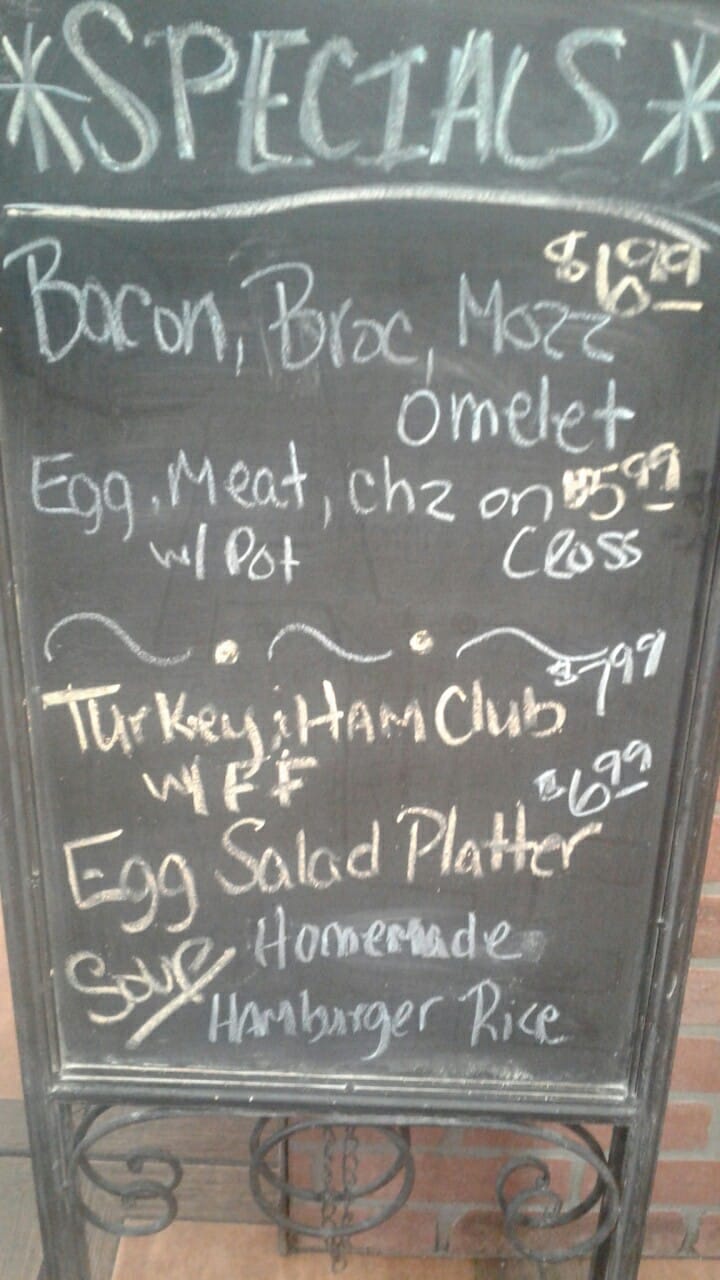 *SPECIALS*
$6.99
Bacon, Broc, Mozz
omelet
Egg, Meat, chz on $5.99
w/ Pot Cross
$7.99
Turkey & HAM Club
w/ FF
$6.99
Egg Salad Platter
Soup Homemade
Hamburger Rice